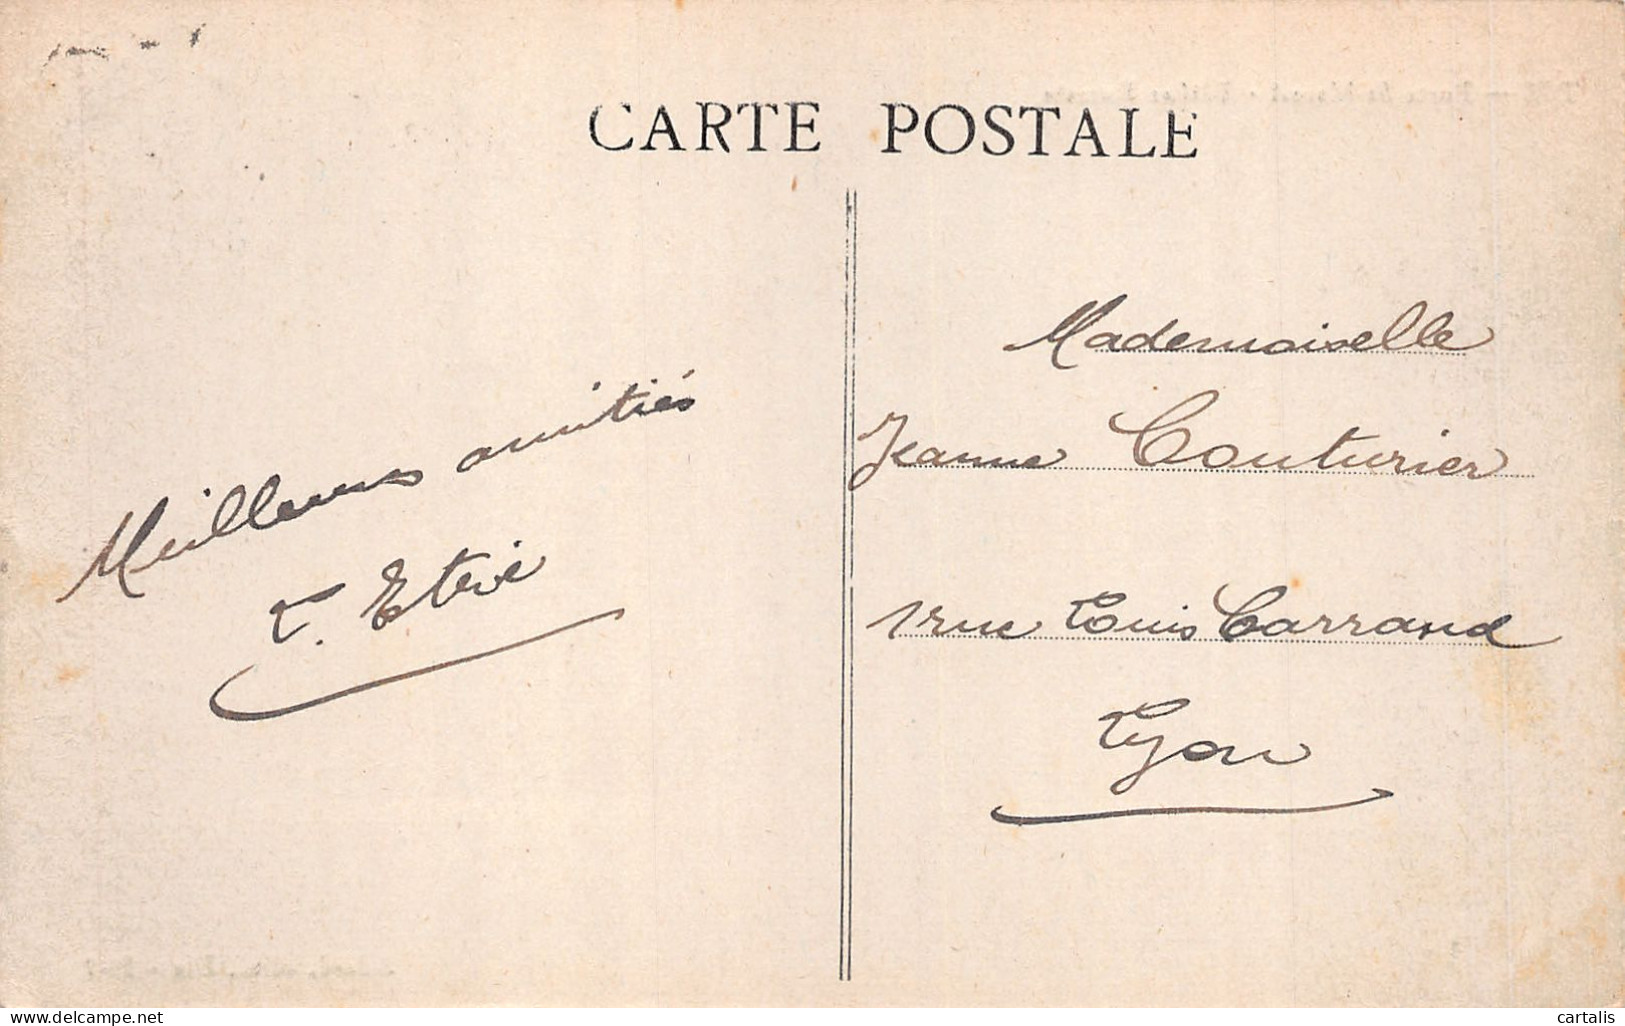 CARTE POSTALE
Meilleures amitiés
Mademoiselle
Jeanne Couturier
1 rue Louis Carrand
Lyon
delcampe.net
cartalis